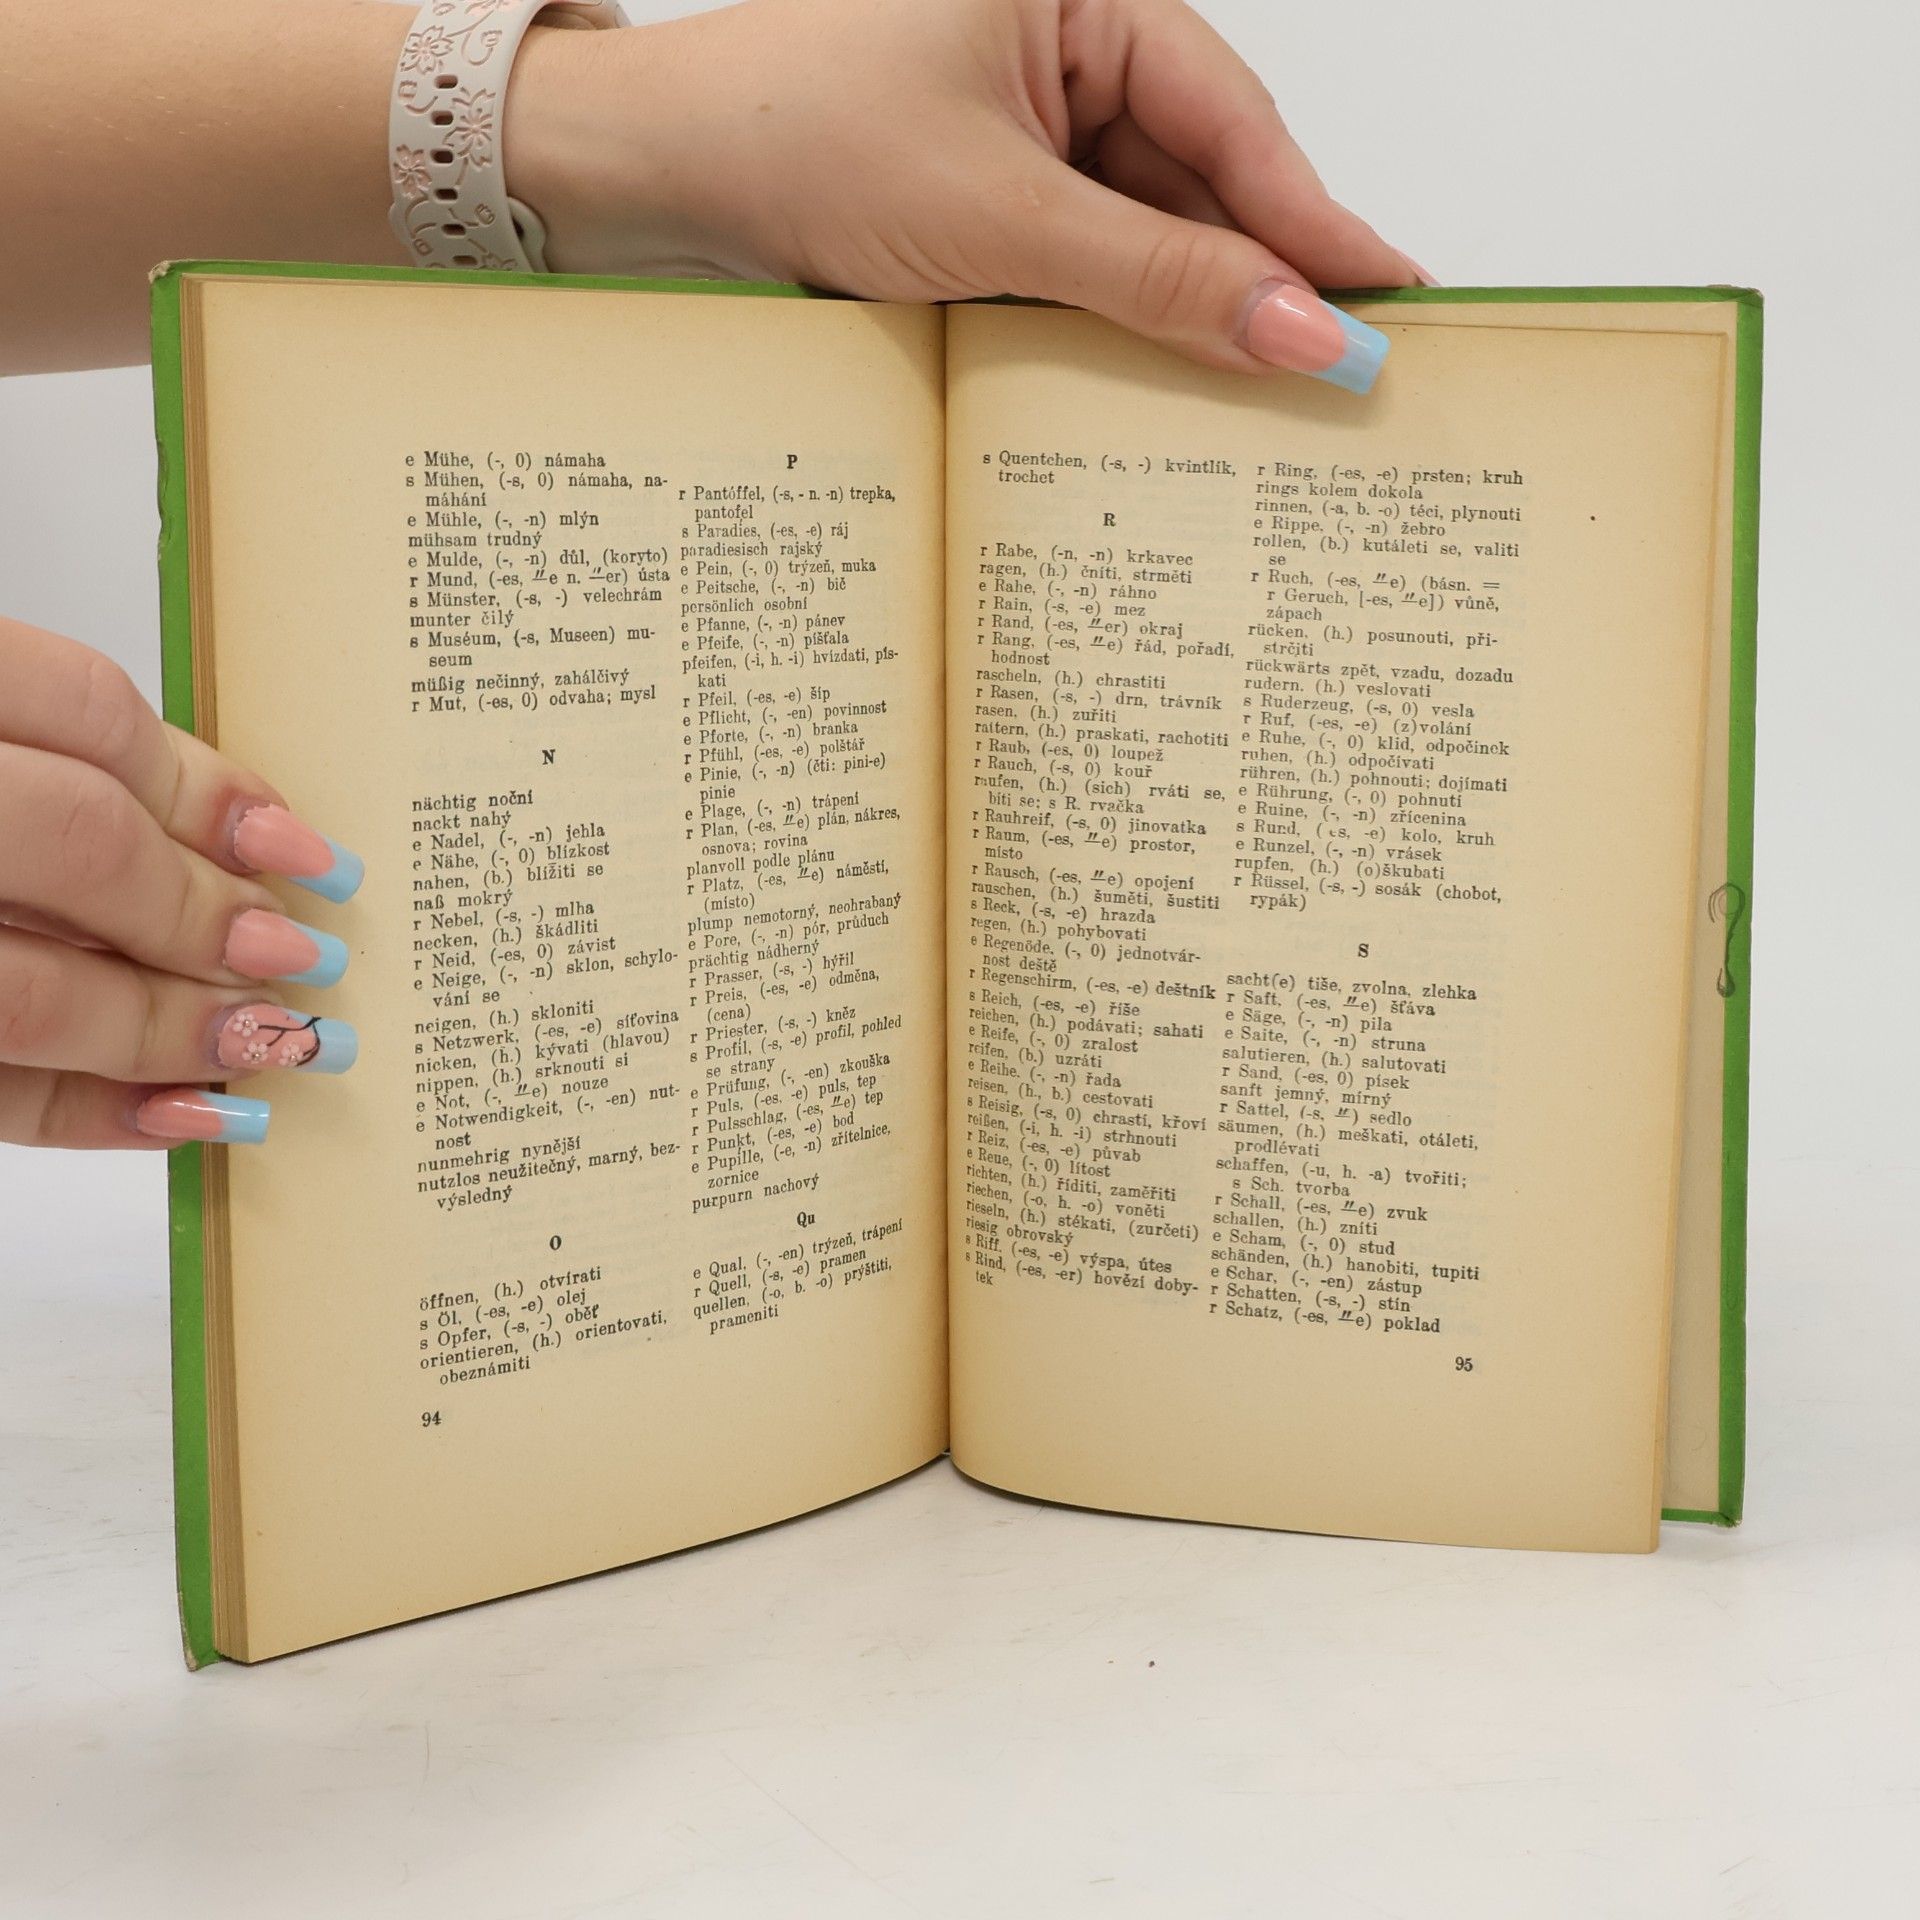 e Mühe, (-, 0) námaha
s Mühen, (-s, 0) námaha, na-
máhání
e Mühle, (-, -n) mlýn
mühsam trudný
e Mulde, (-, -n) důl, (koryto)
r Mund, (-es, ⸚e n. ⸚er) ústa
s Münster, (-s, -) velechrám
munter čilý
s Muséum, (-s, Museen) mu-
seum
müßig nečinný, zahálčivý
r Mut, (-es, 0) odvaha; mysl
N
nächtig noční
nackt nahý
e Nadel, (-, -n) jehla
e Nähe, (-, 0) blízkost
nahen, (b.) blížiti se
naß mokrý
r Nebel, (-s, -) mlha
necken, (h.) škádliti
r Neid, (-es, 0) závist
e Neige, (-, -n) sklon, schylo-
vání se
neigen, (h.) skloniti
s Netzwerk, (-es, -e) síťovina
nicken, (h.) kývati (hlavou)
nippen, (h.) srknouti si
e Not, (-, ⸚e) nouze
e Notwendigkeit, (-, -en) nut-
nost
nunmehrig nynější
nutzlos neužitečný, marný, bez-
výsledný
O
öffnen, (h.) otvírati
s Öl, (-es, -e) olej
s Opfer, (-s, -) oběť
orientieren, (h.) orientovati,
obeznámiti
94
P
r Pantóffel, (-s, - n. -n) trepka,
pantofel
s Paradies, (-es, -e) ráj
paradiesisch rajský
e Pein, (-, 0) trýzeň, muka
e Peitsche, (-, -n) bič
persönlich osobní
e Pfanne, (-, -n) pánev
e Pfeife, (-, -n) píšťala
pfeifen, (-i, h. -i) hvízdati, pís-
kati
r Pfeil, (-es, -e) šíp
e Pflicht, (-, -en) povinnost
e Pforte, (-, -n) branka
r Pfühl, (-es, -e) polštář
e Pinie, (-, -n) (čti: pini-e)
pinie
e Plage, (-, -n) trápení
r Plan, (-es, ⸚e) plán, nákres,
osnova; rovina
planvoll podle plánu
r Platz, (-es, ⸚e) náměstí,
(místo)
plump nemotorný, neohrabaný
e Pore, (-, -n) pór, průduch
prächtig nádherný
r Prasser, (-s, -) hýřil
r Preis, (-es, -e) odměna,
(cena)
r Priester, (-s, -) kněz
s Profíl, (-s, -e) profil, pohled
se strany
e Prüfung, (-, -en) zkouška
r Puls, (-es, -e) puls, tep
r Pulsschlag, (-es, ⸚e) tep
r Punkt, (-es, -e) bod
e Pupílle, (-e, -n) zřítelnice,
zornice
purpurn nachový
Qu
e Qual, (-, -en) trýzeň, trápení
r Quell, (-s, -e) pramen
quellen, (-o, b. -o) prýštiti,
prameniti
s Quentchen, (-s, -) kvintlík,
trochet
R
r Rabe, (-n, -n) krkavec
ragen, (h.) čníti, strměti
e Rahe, (-, -n) ráhno
r Rain, (-s, -e) mez
r Rand, (-es, ⸚er) okraj
r Rang, (-es, ⸚e) řád, pořadí,
hodnost
rascheln, (h.) chrastiti
r Rasen, (-s, -) drn, trávník
rasen, (h.) zuřiti
rattern, (h.) praskati, rachotiti
r Raub, (-es, 0) loupež
r Rauch, (-s, 0) kouř
raufen, (h.) (sich) rváti se,
bíti se; s R. rvačka
r Rauhreif, (-s, 0) jinovatka
r Raum, (-es, ⸚e) prostor,
místo
r Rausch, (-es, ⸚e) opojení
rauschen, (h.) šuměti, šustiti
s Reck, (-s, -e) hrazda
regen, (h.) pohybovati
e Regenöde, (-, 0) jednotvár-
nost deště
r Regenschirm, (-es, -e) deštník
s Reich, (-es, -e) říše
reichen, (h.) podávati; sahati
e Reife, (-, 0) zralost
reifen, (b.) uzráti
e Reihe, (-, -n) řada
reisen, (h., b.) cestovati
s Reisig, (-s, 0) chrastí, křoví
reißen, (-i, h. -i) strhnouti
r Reiz, (-es, -e) půvab
e Reue, (-, 0) lítost
richten, (h.) říditi, zaměřiti
riechen, (-o, h. -o) voněti
rieseln, (h.) stékati, (zurčeti)
riesig obrovský
s Riff, (-es, -e) výspa, útes
s Rind, (-es, -er) hovězí doby-
tek
r Ring, (-es, -e) prsten; kruh
rings kolem dokola
rinnen, (-a, b. -o) téci, plynouti
e Rippe, (-, -n) žebro
rollen, (b.) kutáleti se, valiti
se
r Ruch, (-es, ⸚e) (básn. =
r Geruch, [-es, ⸚e]) vůně,
zápach
rücken, (h.) posunouti, při-
strčiti
rückwärts zpět, vzadu, dozadu
rudern, (h.) veslovati
s Ruderzeug, (-s, 0) vesla
r Ruf, (-es, -e) (z)volání
e Ruhe, (-, 0) klid, odpočinek
ruhen, (h.) odpočívati
rühren, (h.) pohnouti; dojímati
e Rührung, (-, 0) pohnutí
e Ruine, (-, -n) zřícenina
s Rund, (-es, -e) kolo, kruh
e Runzel, (-, -n) vrásek
rupfen, (h.) (o)škubati
r Rüssel, (-s, -) sosák (chobot,
rypák)
S
sacht(e) tiše, zvolna, zlehka
r Saft, (-es, ⸚e) šťáva
e Säge, (-, -n) pila
e Saite, (-, -n) struna
salutieren, (h.) salutovati
r Sand, (-es, 0) písek
sanft jemný, mírný
r Sattel, (-s, ⸚) sedlo
säumen, (h.) meškati, otáleti,
prodlévati
schaffen, (-u, h. -a) tvořiti;
s Sch. tvorba
r Schall, (-es, ⸚e) zvuk
schallen, (h.) zníti
e Scham, (-, 0) stud
schänden, (h.) hanobiti, tupiti
e Schar, (-, -en) zástup
r Schatten, (-s, -) stín
r Schatz, (-es, ⸚e) poklad
95